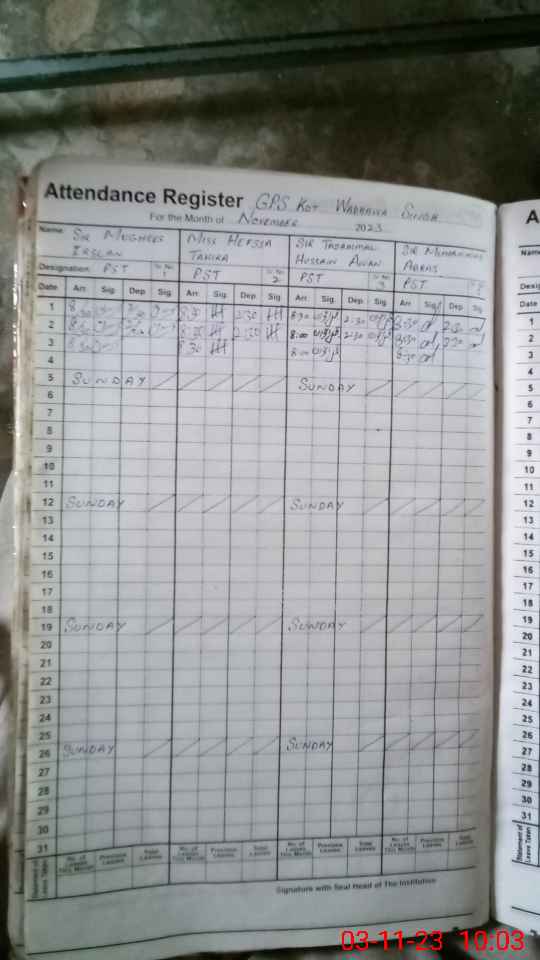 Attendance Register GPS KOT WADHAWA SINGH
For the Month of NOVEMBER 2023
Name: SIR MUGHEES MISS HEFSSA SIR TASAHIMAL SIR MUHAMMAD
IRSLAN TAHIRA HUSSAIN AWAN ABBAS
Designation: PST Sr. No. 1 PST Sr. No. 2 PST Sr. No. 3 PST
Date Arr. Sig. Dep. Sig. Arr. Sig. Dep. Sig. Arr. Sig. Dep. Sig. Arr. Sig. Dep. Sig.
1 8:30 HH 2:30 HH 8:30 2:30 8:30 2:30
2 8:30 HH 2:30 HH 8:00 2:30 8:30 2:30
3 8:30 8:30 HH 8:00 8:30
4
5 SUNDAY SUNDAY
6
7
8
9
10
11
12 SUNDAY SUNDAY
13
14
15
16
17
18
19 SUNDAY SUNDAY
20
21
22
23
24
25
26 SUNDAY SUNDAY
27
28
29
30
31
Statement of Leave Taken No. of Leaves This Month Previous Leaves Total Leaves No. of Leaves This Month Previous Leaves Total Leaves No. of Leaves This Month Previous Leaves Total Leaves No. of Leaves This Month Previous Leaves Total Leaves
Signature with Seal Head of The Institution
A
Name
Desig
Date
1
2
3
4
5
6
7
8
9
10
11
12
13
14
15
16
17
18
19
20
21
22
23
24
25
26
27
28
29
30
31
Statement of Leave Taken
03-11-23 10:03